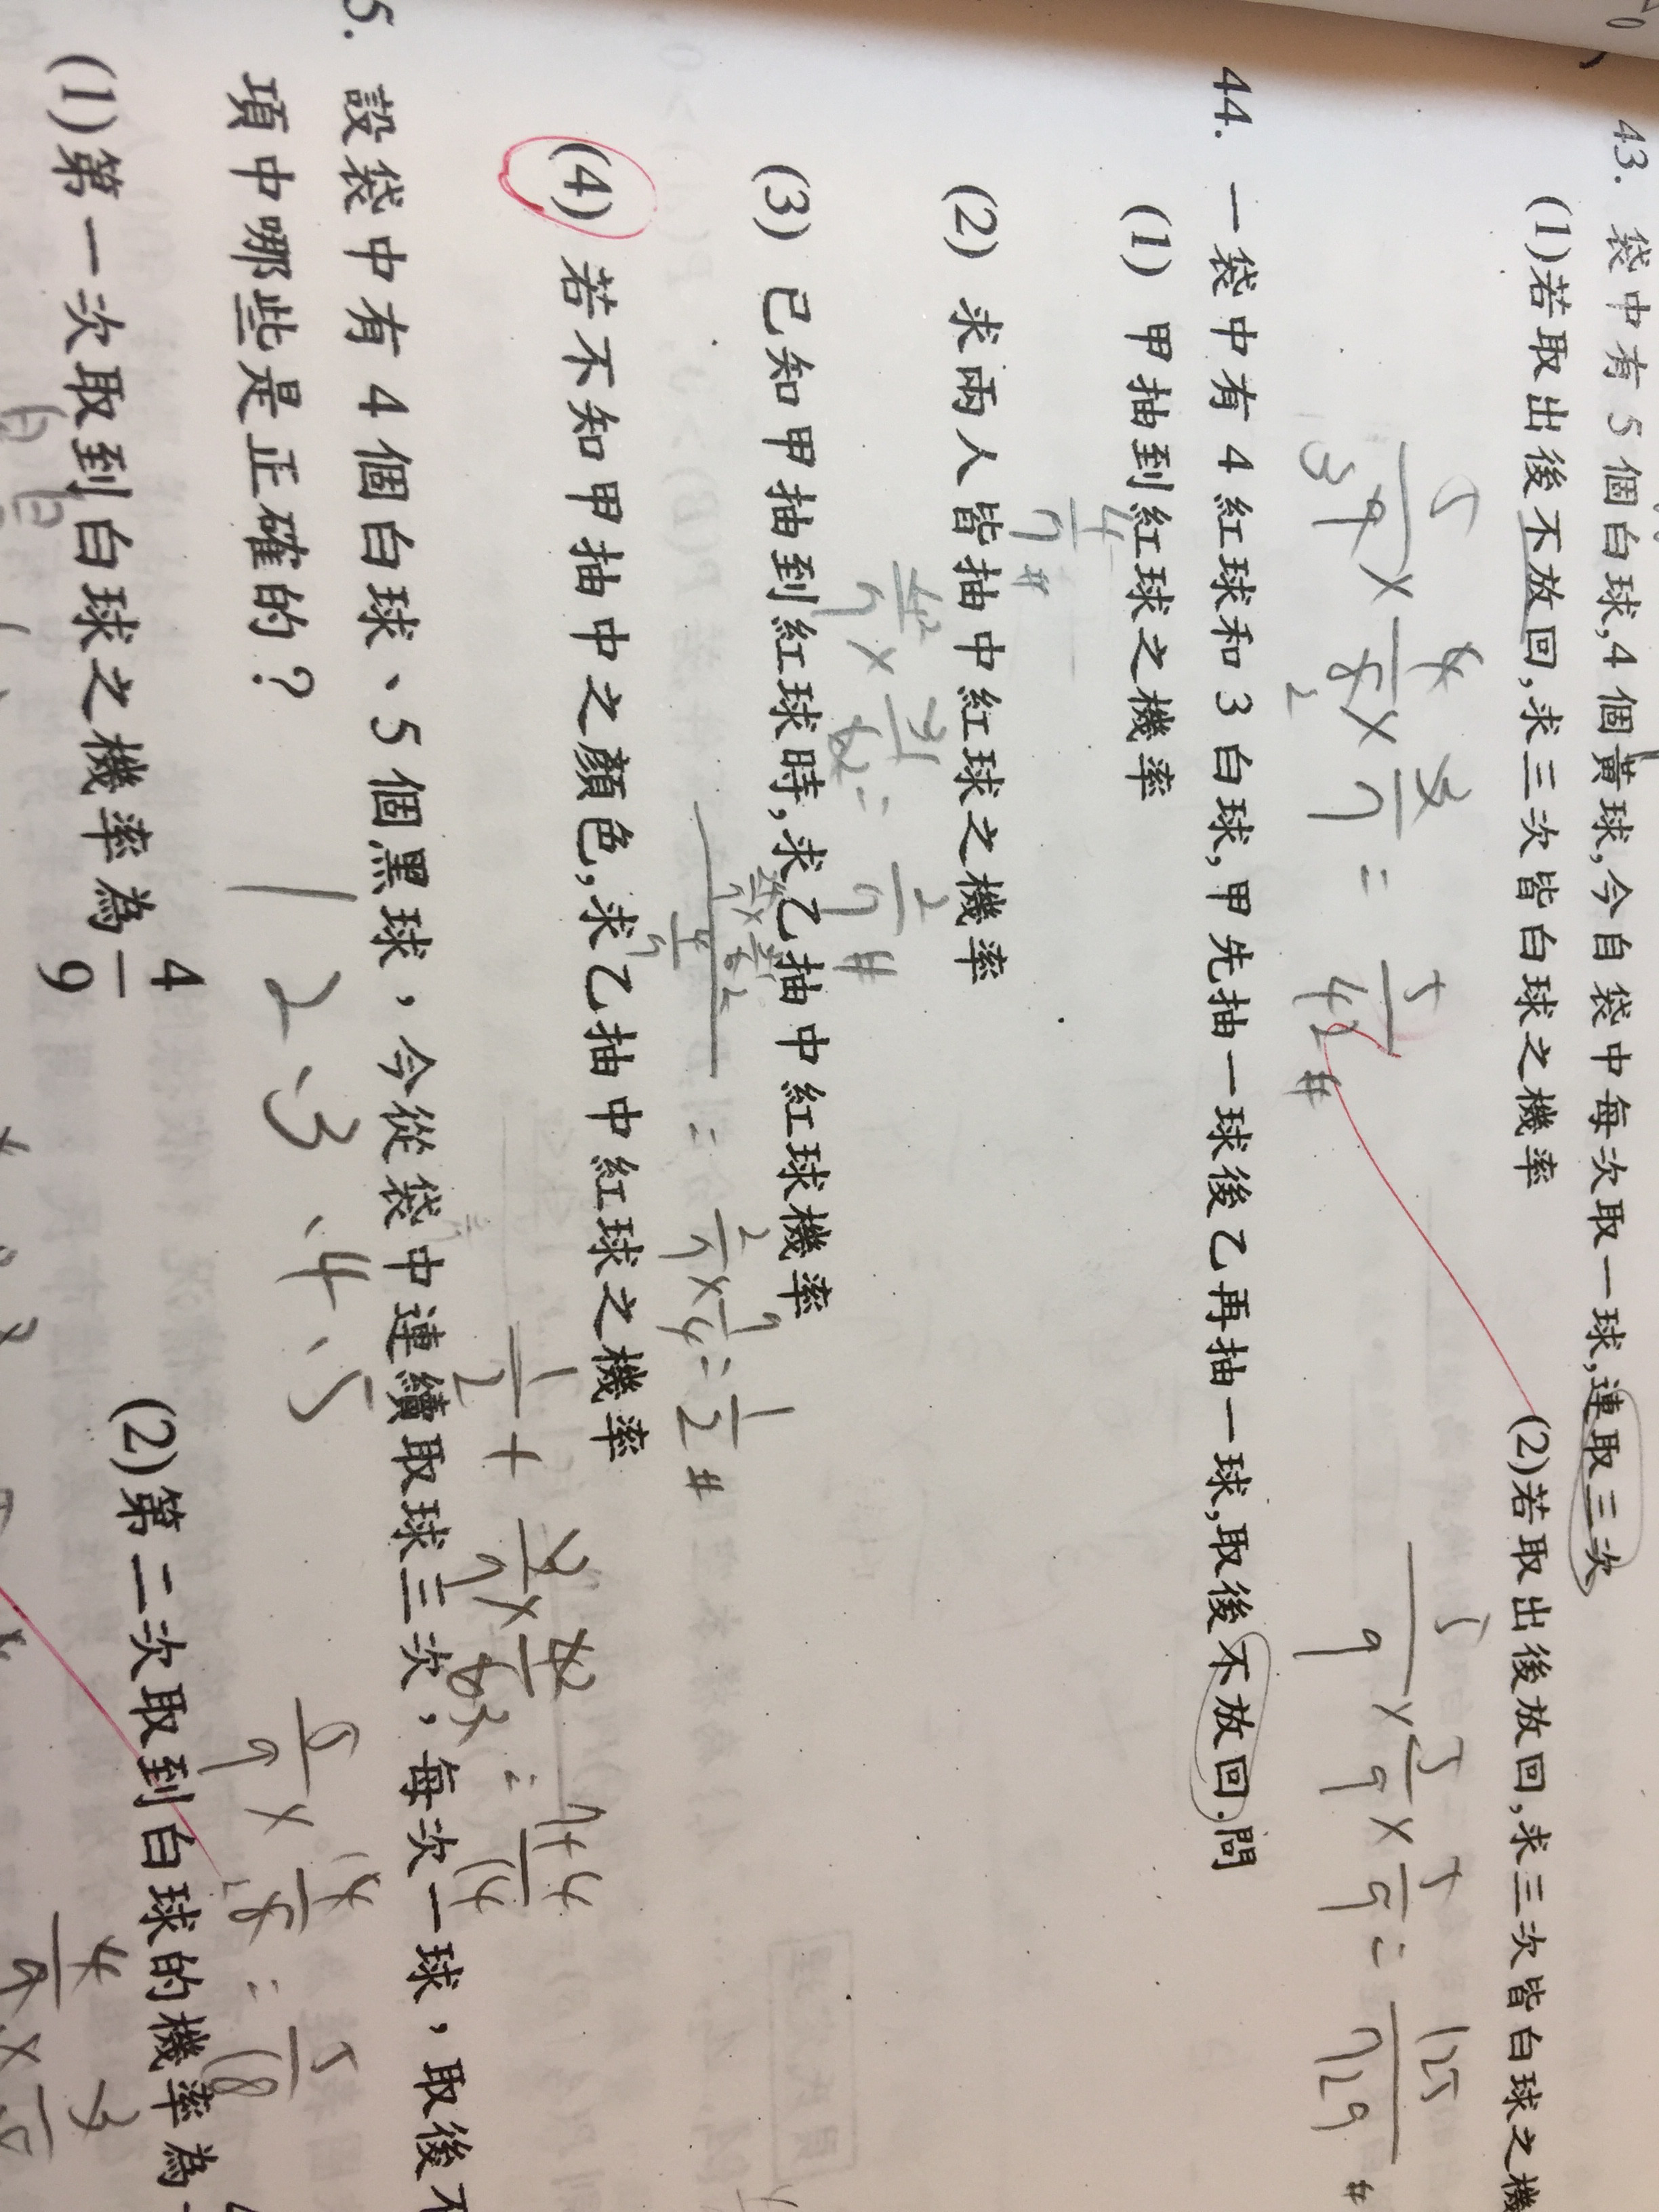 43. 袋中有 5 個白球,4 個黃球,今自袋中每次取一球,連取三次
(1)若取出後不放回,求三次皆白球之機率 (2)若取出後放回,求三次皆白球之機
5/9 × 4/8 × 3/7 = 5/42 #
5/9 × 5/9 × 5/9 = 125/729 #
44. 一袋中有 4 紅球和 3 白球,甲先抽一球後乙再抽一球,取後不放回.問
(1) 甲抽到紅球之機率
4/7 #
(2) 求兩人皆抽中紅球之機率
4/7 × 3/6 = 2/7 #
(3) 已知甲抽到紅球時,求乙抽中紅球機率
= 2/7 × 7/4 = 1/2 #
(4) 若不知甲抽中之顏色,求乙抽中紅球之機率
1/2 + 3/7 × 4/6 = 7+4/14
5. 設袋中有 4 個白球、5 個黑球,今從袋中連續取球三次,每次一球,取後不
項中哪些是正確的?
1 2 、3 、4 、5
5/9 × 4/8 = 5/18
(1)第一次取到白球之機率為 4/9 (2)第二次取到白球的機率為